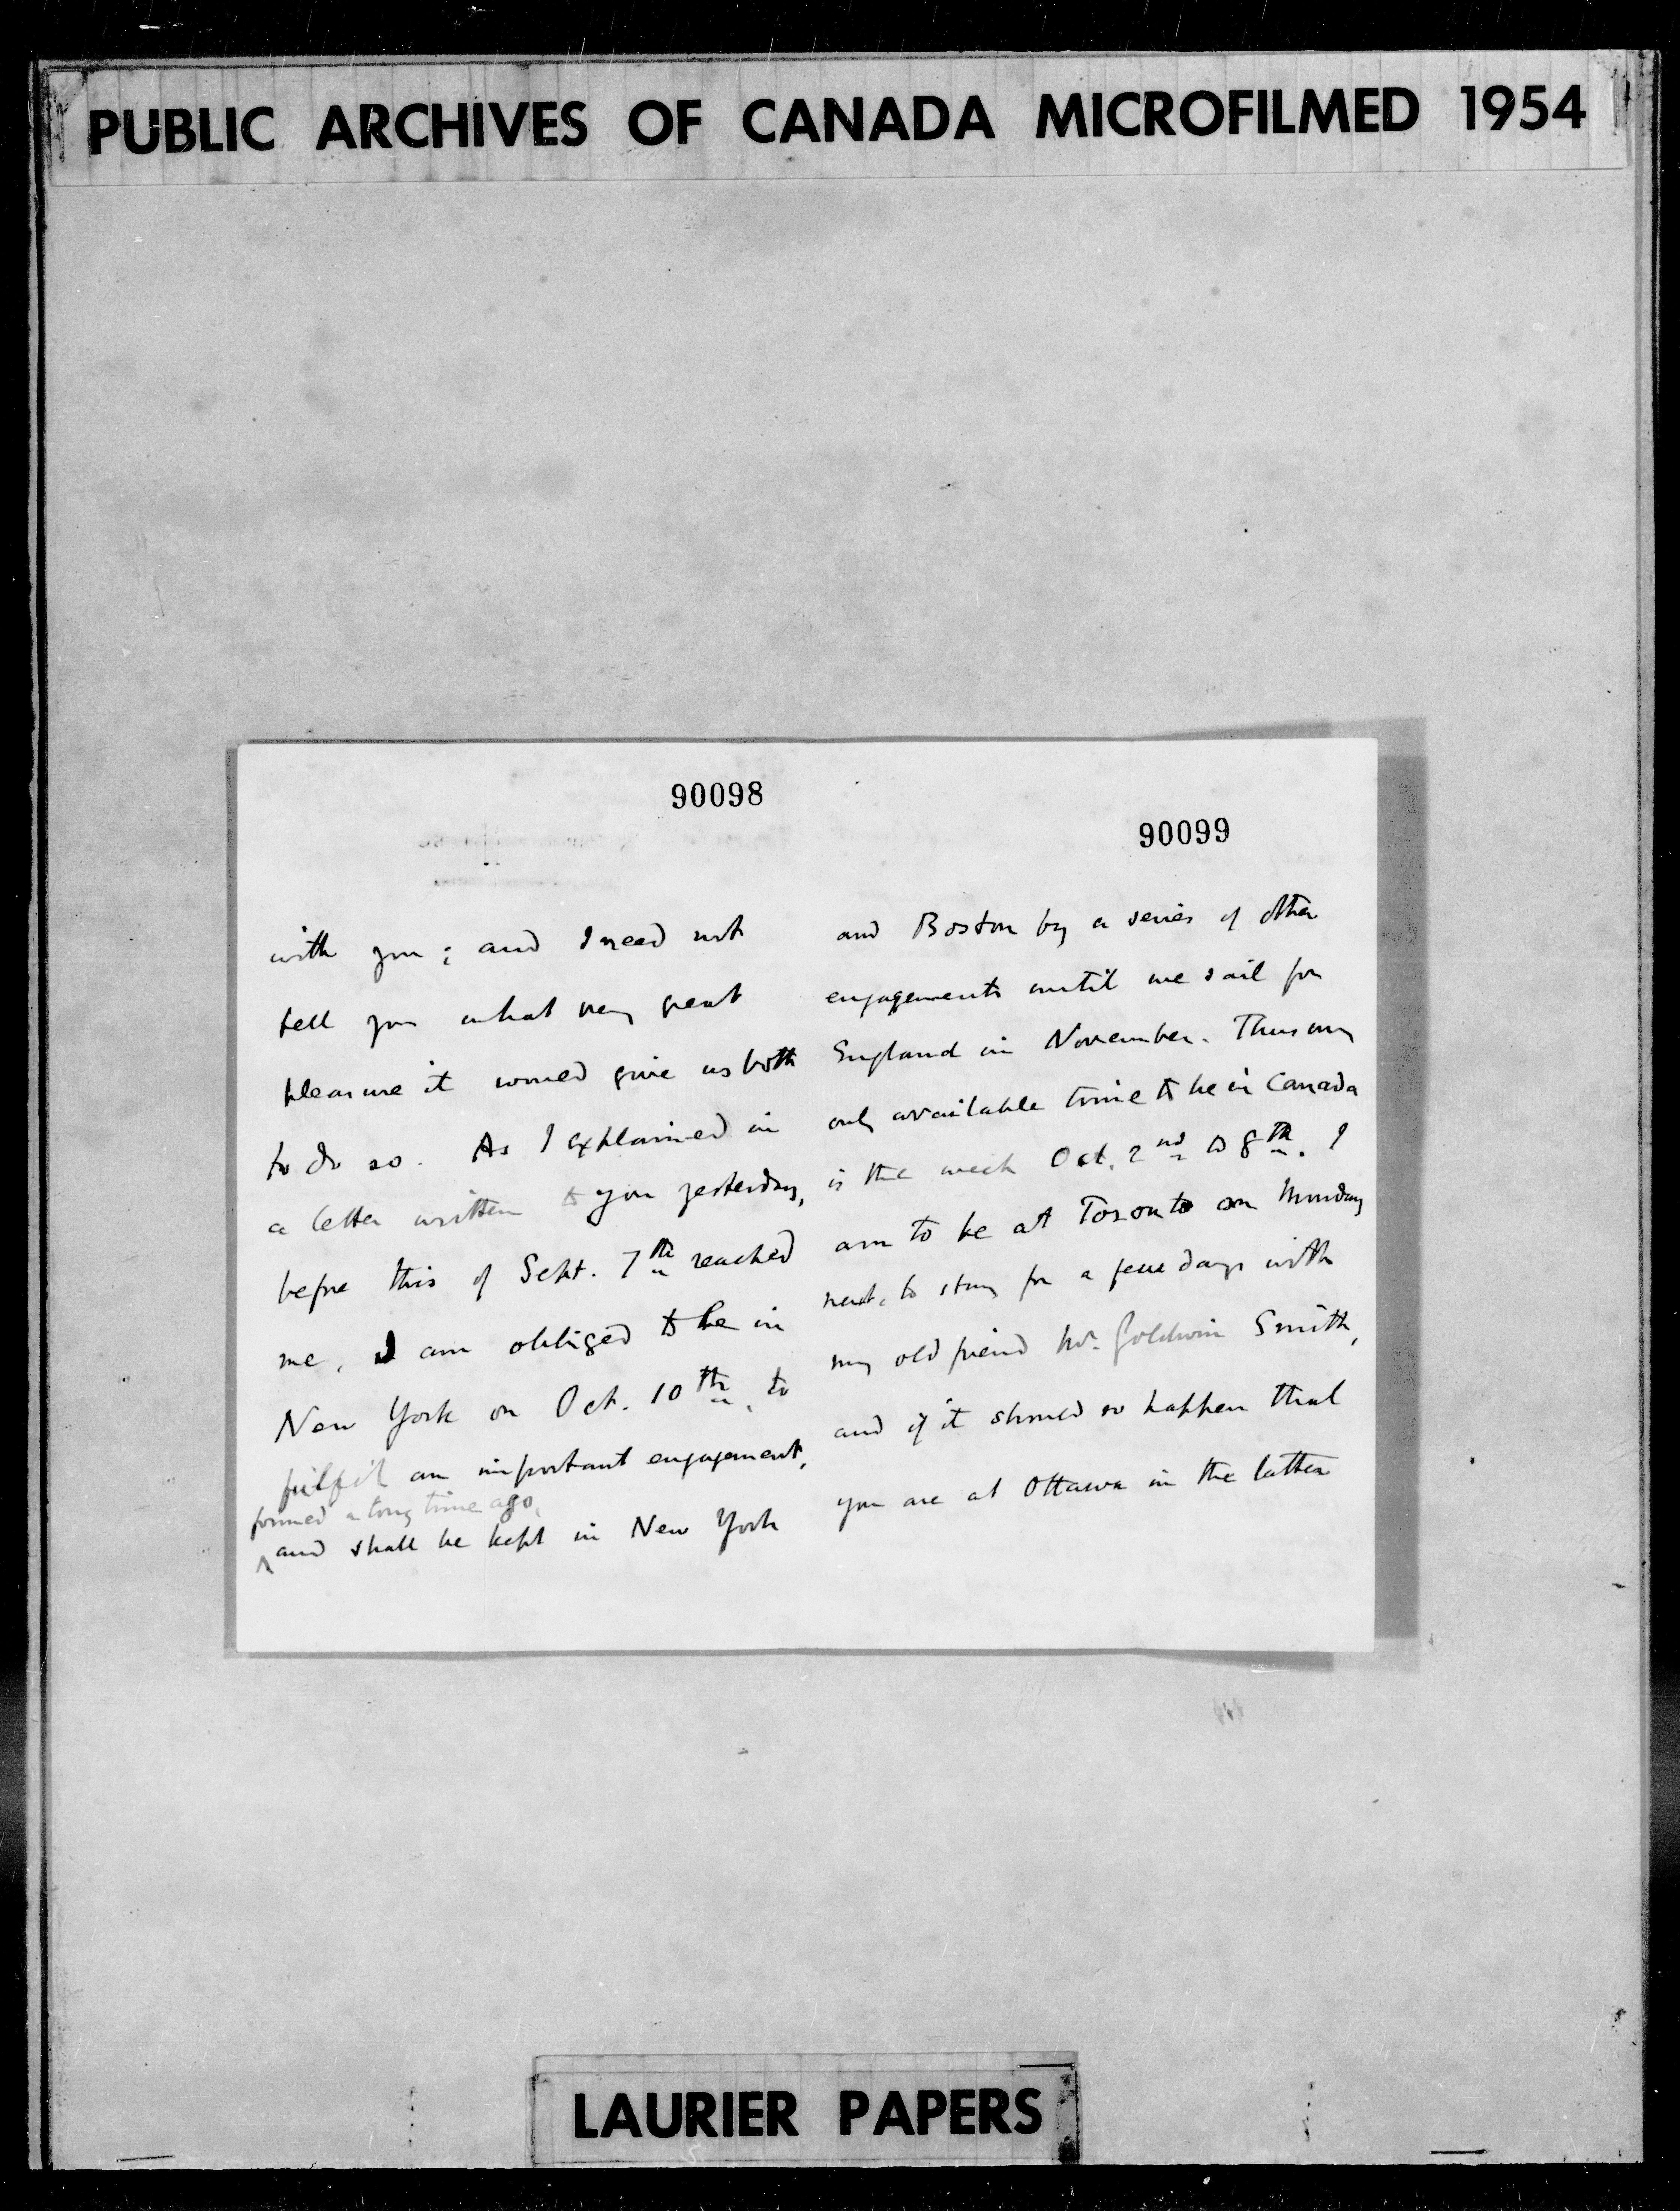 PUBLIC ARCHIVES OF CANADA MICROFILMED 1954
90098
with you; and I need not
tell you what very great
pleasure it would give us both
to do so. As I explained in
a letter written to you yesterday,
before this of Sept. 7th reached
me, I am obliged to be in
New York on Oct. 10th, to
fulfil an important engagement,
formed a long time ago,
^ and shall be kept in New York
90099
and Boston by a series of other
engagements until we sail for
England in November. Thus my
only available time to be in Canada
is the week Oct. 2nd to 8th. I
am to be at Toronto on Monday
next, to stay for a few days with
my old friend Mr. Goldwin Smith,
and if it should so happen that
you are at Ottawa in the latter
LAURIER PAPERS